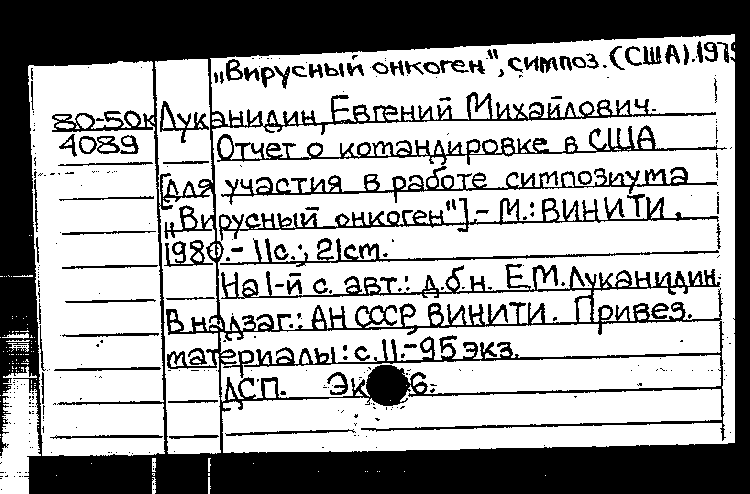 „Вирусный онкоген", симпоз. (США). 1979
80-50к Луканидин, Евгений Михайлович.
4089 Отчет о командировке в США
[для участия в работе симпозиума
„Вирусный онкоген"].- М.: ВИНИТИ,
1980.- 11с.; 21см.
На 1-й с. авт.: д.б.н. Е.М.Луканидин.
В надзаг.: АН СССР, ВИНИТИ. Привез.
материалы: с.11.-95 экз.
ДСП. 6.